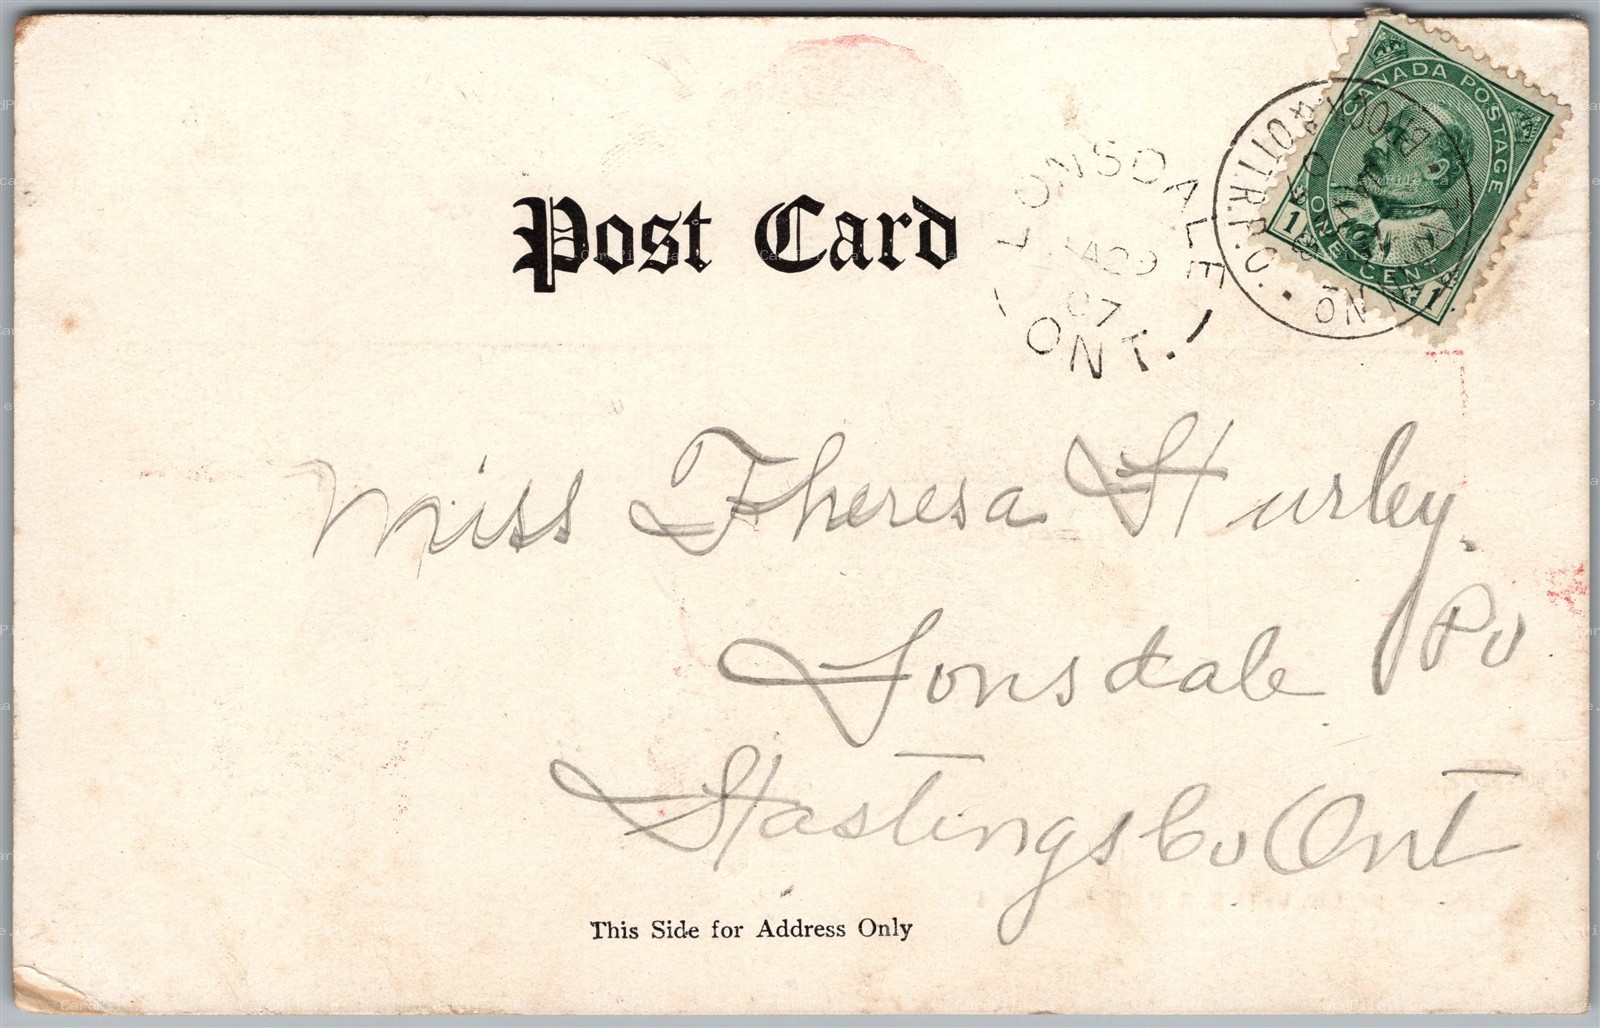 CANADA POSTAGE
1 ONE CENT 1
Post Card
LONSDALE
07
ONT.
Miss Theresa Hurley.
Lonsdale Po
Hastings Co Ont
This Side for Address Only